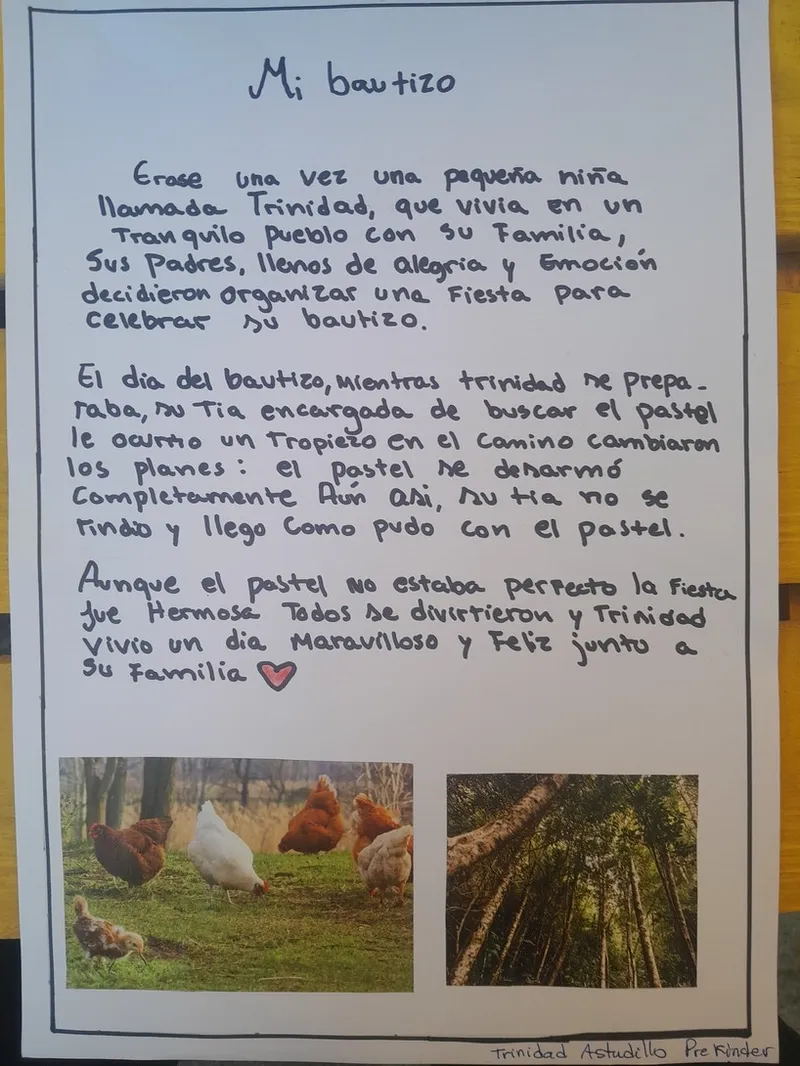 Mi bautizo
Erase una vez una pequeña niña
llamada Trinidad, que vivia en un
Tranquilo pueblo con su Familia,
Sus Padres, llenos de alegria y Emoción
decidieron organizar una Fiesta para
celebrar su bautizo.
El dia del bautizo, mientras trinidad se prepa-
raba, su Tia encargada de buscar el pastel
le ocurrio un Tropiezo en el camino cambiaron
los planes: el pastel se desarmó
Completamente Aún asi, su tia no se
rindio y llego Como pudo con el pastel.
Aunque el pastel No estaba perfecto la Fiesta
fue Hermosa Todos se divirtieron y Trinidad
Vivio un dia Maravilloso y Feliz junto a
Su Familia
Trinidad Astudillo Pre Kinder